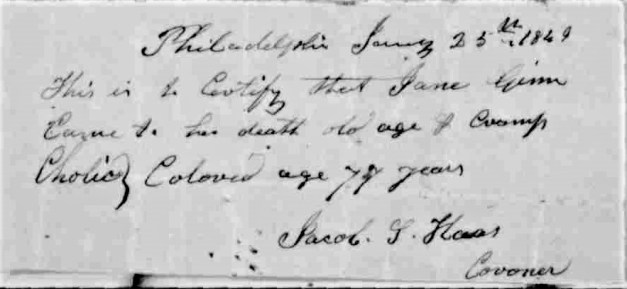 Philadelphia Jany 25th 1849
This is to Certify that Jane Ginn
Came to her death old age & Cramp
Cholic Colored age 79 years
Jacob. S. Haas
Coroner